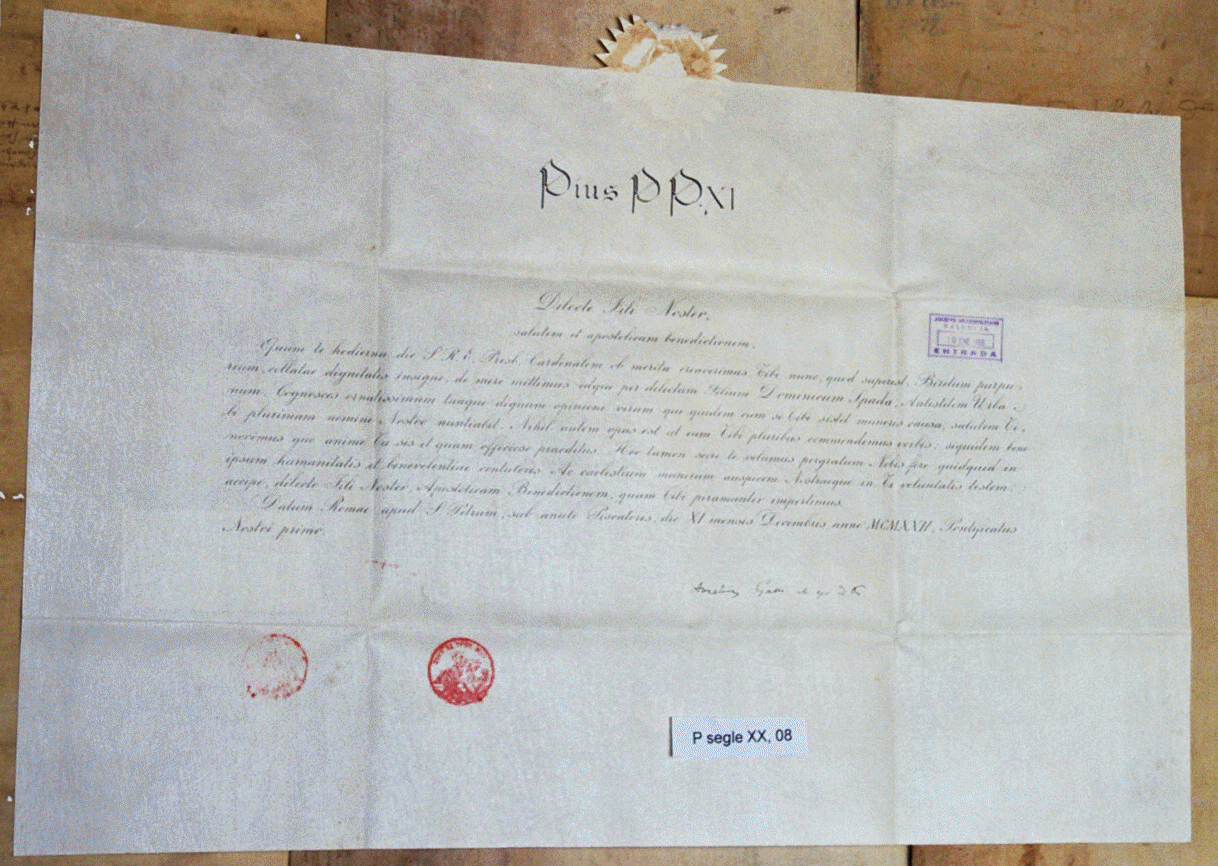 Pius PP. XI
Dilecte Fili Noster,
salutem et apostolicam benedictionem.
Quum te hodierna die S. R. E. Presb. Cardinalem ob merita creaverimus Tibi nunc, quod superest, Biretum purpu-
reum, collatae dignitatis insigne, de more mittimus idque per dilectum Filium Dominicum Spada, Antistitem Urba-
num. Cognosces ornatissimum tuaque dignum opinione virum qui quidem cum se tibi sistet muneris causa, salutem Ti-
bi plurimam nomine Nostro nuntiabit. Nihil autem opus est ut eum Tibi pluribus commendemus verbis, siquidem bene
novimus quo animo Tu sis et quam officiose praeditus. Hoc tamen scire te volumus pergratum Nobis fore quidquid in
ipsum humanitatis et benevolentiae contuleris. Ac caelestium munerum auspicem Nostraeque in Te voluntatis testem,
accipe, dilecte Fili Noster, Apostolicam Benedictionem, quam tibi peramanter impertimus.
Datum Romae apud S. Petrum, sub anulo Piscatoris, die XI mensis Decembris anno MCMXXII, Pontificatus
Nostri primo.
VALENCIA
ENE
ENTRADA
P segle XX, 08